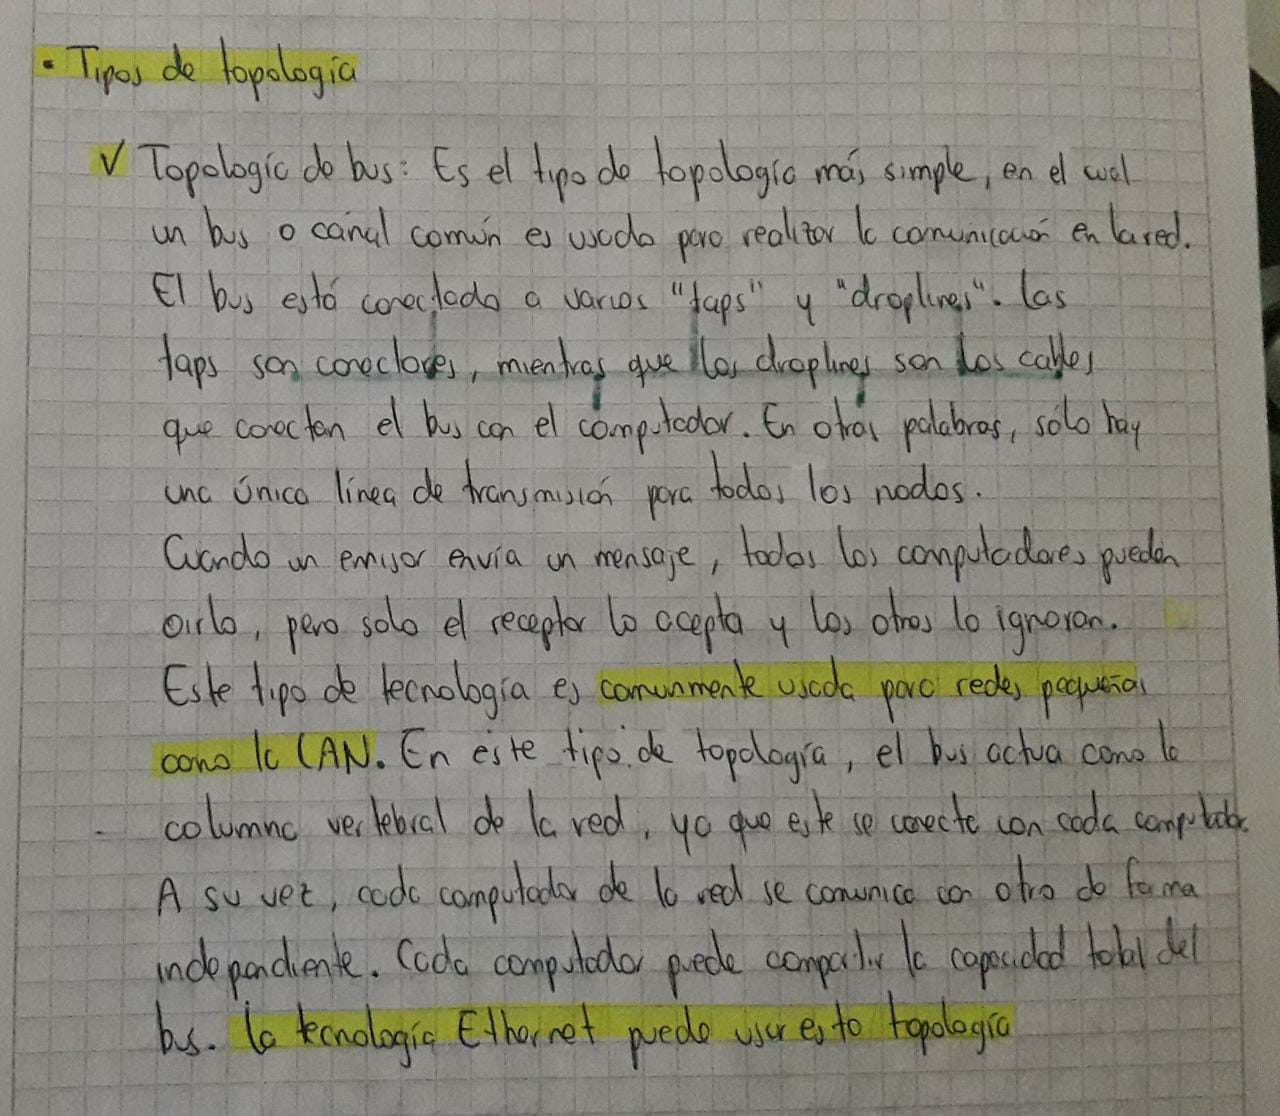 • Tipos de topología
✓ Topología de bus: Es el tipo de topología más simple, en el cual
un bus o canal común es usado para realizar la comunicación en la red.
El bus está conectado a varios "taps" y "droplines". Las
taps son conectores, mientras que los droplines son los cables
que conectan el bus con el computador. En otras palabras, sólo hay
una única línea de transmisión para todos los nodos.
Cuando un emisor envía un mensaje, todos los computadores pueden
oirlo, pero solo el receptor lo acepta y los otros lo ignoran.
Este tipo de tecnología es comunmente usada para redes pequeñas
como la LAN. En este tipo de topología, el bus actua como la
columna vertebral de la red, ya que este se conecta con cada computador.
A su vez, cada computador de la red se comunica con otro de forma
independiente. Cada computador puede compartir la capacidad total del
bus. La tecnología Ethernet puede usar esta topología